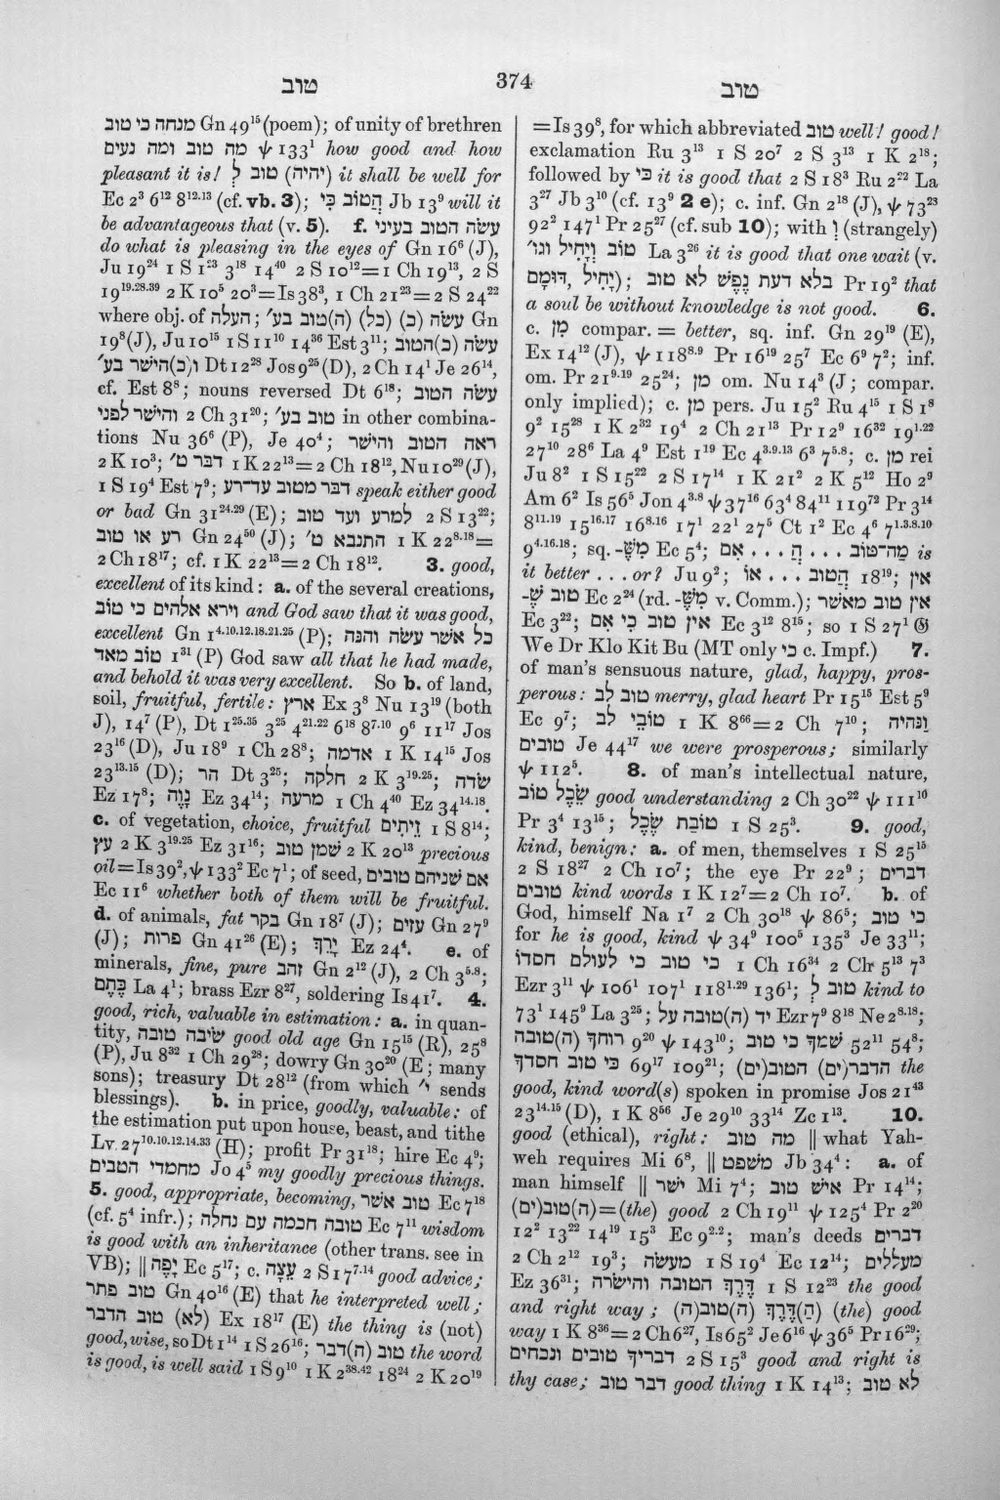 טוב
374
טוב
מנחה כי טוב Gn 49¹⁵ (poem); of unity of brethren
מה טוב ומה נעים ψ 133¹ how good and how
pleasant it is! טוב לְ (יהיה) it shall be well for
Ec 2³ 6¹² 8¹²·¹³ (cf. vb. 3); הֲטוֹב כִּי Jb 13⁹ will it
be advantageous that (v. 5). f. עשׂה הטוב בעיני
do what is pleasing in the eyes of Gn 16⁶ (J),
Ju 19²⁴ 1 S 1²³ 3¹⁸ 14⁴⁰ 2 S 10¹²=1 Ch 19¹³, 2 S
19¹⁹·²⁸·³⁹ 2 K 10⁵ 20³=Is 38³, 1 Ch 21²³=2 S 24²²
where obj. of העלה; עשׂה (כ) (כל) (ה)טוב בע׳ Gn
19⁸ (J), Ju 10¹⁵ 1 S 11¹⁰ 14³⁶ Est 3¹¹; עשׂה (כ)הטוב
ו(כ)הישׁר בע׳ Dt 12²⁸ Jos 9²⁵ (D), 2 Ch 14¹ Je 26¹⁴,
cf. Est 8⁸; nouns reversed Dt 6¹⁸; עשׂה הטוב
והישׁר לפני 2 Ch 31²⁰; טוב בע׳ in other combina-
tions Nu 36⁶ (P), Je 40⁴; ראה הטוב והישׁר
2 K 10³; דבּר ט׳ 1 K 22¹³=2 Ch 18¹², Nu 10²⁹ (J),
1 S 19⁴ Est 7⁹; דבּר מטוב עד־רע speak either good
or bad Gn 31²⁴·²⁹ (E); למרע ועד טוב 2 S 13²²;
רע או טוב Gn 24⁵⁰ (J); התנבא ט׳ 1 K 22⁸·¹⁸=
2 Ch 18¹⁷; cf. 1 K 22¹³=2 Ch 18¹². 3. good,
excellent of its kind: a. of the several creations,
וירא אלהים כי טוֹב and God saw that it was good,
excellent Gn 1⁴·¹⁰·¹²·¹⁸·²¹·²⁵ (P); כל אשׁר עשׂה והנה
טוֹב מאד 1³¹ (P) God saw all that he had made,
and behold it was very excellent. So b. of land,
soil, fruitful, fertile: ארץ Ex 3⁸ Nu 13¹⁹ (both
J), 14⁷ (P), Dt 1²⁵·³⁵ 3²⁵ 4²¹·²² 6¹⁸ 8⁷·¹⁰ 9⁶ 11¹⁷ Jos
23¹⁶ (D), Ju 18⁹ 1 Ch 28⁸; אדמה 1 K 14¹⁵ Jos
23¹³·¹⁵ (D); הר Dt 3²⁵; חלקה 2 K 3¹⁹·²⁵; שׂדה
Ez 17⁸; נָוֶה Ez 34¹⁴; מרעה 1 Ch 4⁴⁰ Ez 34¹⁴·¹⁸.
c. of vegetation, choice, fruitful זֵיתִים 1 S 8¹⁴;
עֵץ 2 K 3¹⁹·²⁵ Ez 31¹⁶; שׁמן טוב 2 K 20¹³ precious
oil=Is 39², ψ 133² Ec 7¹; of seed, אם שׁניהם טובים
Ec 11⁶ whether both of them will be fruitful.
d. of animals, fat בקר Gn 18⁷ (J); עזים Gn 27⁹
(J); פרות Gn 41²⁶ (E); יָרֵךְ Ez 24⁴. e. of
minerals, fine, pure זהב Gn 2¹² (J), 2 Ch 3⁵·⁸;
כֶּתֶם La 4¹; brass Ezr 8²⁷, soldering Is 41⁷. 4.
good, rich, valuable in estimation: a. in quan-
tity, שׂיבה טובה good old age Gn 15¹⁵ (R), 25⁸
(P), Ju 8³² 1 Ch 29²⁸; dowry Gn 30²⁰ (E; many
sons); treasury Dt 28¹² (from which י׳ sends
blessings). b. in price, goodly, valuable: of
the estimation put upon house, beast, and tithe
Lv. 27¹⁰·¹⁰·¹²·¹⁴·³³ (H); profit Pr 31¹⁸; hire Ec 4⁹;
מחמדי הטבים Jo 4⁵ my goodly precious things.
5. good, appropriate, becoming, טוב אשׁר Ec 7¹⁸
(cf. 5⁴ infr.); טובה חכמה עם נחלה Ec 7¹¹ wisdom
is good with an inheritance (other trans. see in
VB); ‖ יָפֶה Ec 5¹⁷; c. עֵצָה 2 S 17⁷·¹⁴ good advice;
טוב פתר Gn 40¹⁶ (E) that he interpreted well;
(לא) טוב הדבר Ex 18¹⁷ (E) the thing is (not)
good, wise, so Dt 1¹⁴ 1 S 26¹⁶; טוב (ה)דבר the word
is good, is well said 1 S 9¹⁰ 1 K 2³⁸·⁴² 18²⁴ 2 K 20¹⁹
=Is 39⁸, for which abbreviated טוב well! good!
exclamation Ru 3¹³ 1 S 20⁷ 2 S 3¹³ 1 K 2¹⁸;
followed by כִּי it is good that 2 S 18³ Ru 2²² La
3²⁷ Jb 3¹⁰ (cf. 13⁹ 2 e); c. inf. Gn 2¹⁸ (J), ψ 73²³
92² 147¹ Pr 25²⁷ (cf. sub 10); with וְ (strangely)
טוֹב וְיָחִיל וגו׳ La 3²⁶ it is good that one wait (v.
יָחִיל, דּוּמָם); בלא דעת נֶפֶשׁ לא טוב Pr 19² that
a soul be without knowledge is not good. 6.
c. מִן compar. = better, sq. inf. Gn 29¹⁹ (E),
Ex 14¹² (J), ψ 118⁸·⁹ Pr 16¹⁹ 25⁷ Ec 6⁹ 7²; inf.
om. Pr 21⁹·¹⁹ 25²⁴; מִן om. Nu 14³ (J; compar.
only implied); c. מִן pers. Ju 15² Ru 4¹⁵ 1 S 1⁸
9² 15²⁸ 1 K 2³² 19⁴ 2 Ch 21¹³ Pr 12⁹ 16³² 19¹·²²
27¹⁰ 28⁶ La 4⁹ Est 1¹⁹ Ec 4³·⁹·¹³ 6³ 7⁵·⁸; c. מִן rei
Ju 8² 1 S 15²² 2 S 17¹⁴ 1 K 21² 2 K 5¹² Ho 2⁹
Am 6² Is 56⁵ Jon 4³·⁸ ψ 37¹⁶ 63⁴ 84¹¹ 119⁷² Pr 3¹⁴
8¹¹·¹⁹ 15¹⁶·¹⁷ 16⁸·¹⁶ 17¹ 22¹ 27⁵ Ct 1² Ec 4⁶ 7¹·³·⁸·¹⁰
9⁴·¹⁶·¹⁸; sq. מִשֶּׁ- Ec 5⁴; מַה־טּוֹב . . . הֲ . . . אִם is
it better . . . or? Ju 9²; הֲטוב . . . אוֹ 18¹⁹; אין
טוב שֶׁ- Ec 2²⁴ (rd. מִשֶּׁ- v. Comm.); אין טוב מאשׁר
Ec 3²²; אין טוב כִּי אִם Ec 3¹² 8¹⁵; so 1 S 27¹ 𝔊
We Dr Klo Kit Bu (MT only כִּי c. Impf.) 7.
of man's sensuous nature, glad, happy, pros-
perous: טוב לֵב merry, glad heart Pr 15¹⁵ Est 5⁹
Ec 9⁷; טוֹבֵי לב 1 K 8⁶⁶=2 Ch 7¹⁰; וַנִּהְיֶה
טובים Je 44¹⁷ we were prosperous; similarly
ψ 112⁵. 8. of man's intellectual nature,
שֵׂכֶל טוֹב good understanding 2 Ch 30²² ψ 111¹⁰
Pr 3⁴ 13¹⁵; טוֹבַת שֶׂכֶל 1 S 25³. 9. good,
kind, benign: a. of men, themselves 1 S 25¹⁵
2 S 18²⁷ 2 Ch 10⁷; the eye Pr 22⁹; דברים
טובים kind words 1 K 12⁷=2 Ch 10⁷. b. of
God, himself Na 1⁷ 2 Ch 30¹⁸ ψ 86⁵; כי טוב
for he is good, kind ψ 34⁹ 100⁵ 135³ Je 33¹¹;
כי טוב כי לעולם חסדוֹ 1 Ch 16³⁴ 2 Ch 5¹³ 7³
Ezr 3¹¹ ψ 106¹ 107¹ 118¹·²⁹ 136¹; טוב לְ kind to
73¹ 145⁹ La 3²⁵; יד (ה)טובה על Ezr 7⁹ 8¹⁸ Ne 2⁸·¹⁸;
רוחך (ה)טובה 9²⁰ ψ 143¹⁰; שׁמךָ כי טוב 52¹¹ 54⁸;
כּי טוב חסדּךָ 69¹⁷ 109²¹; הדבר(ים) הטוב(ים) the
good, kind word(s) spoken in promise Jos 21⁴³
23¹⁴·¹⁵ (D), 1 K 8⁵⁶ Je 29¹⁰ 33¹⁴ Zc 1¹³. 10.
good (ethical), right: מה טוב ‖ what Yah-
weh requires Mi 6⁸, ‖ משׁפט Jb 34⁴: a. of
man himself ‖ ישׁר Mi 7⁴; אישׁ טוב Pr 14¹⁴;
(ה)טוב(ים)=(the) good 2 Ch 19¹¹ ψ 125⁴ Pr 2²⁰
12² 13²² 14¹⁹ 15³ Ec 9²·²; man's deeds דברים
2 Ch 2¹² 19³; מעשׂה 1 S 19⁴ Ec 12¹⁴; מעללים
Ez 36³¹; דֶּרֶךְ הטובה והישׁרה 1 S 12²³ the good
and right way; (הַ)דֶּרֶךְ (ה)טוב(ה) (the) good
way 1 K 8³⁶=2 Ch 6²⁷, Is 65² Je 6¹⁶ ψ 36⁵ Pr 16²⁹;
דבריך טובים ונכחים 2 S 15³ good and right is
thy case; דבר טוב good thing 1 K 14¹³; לא טוב